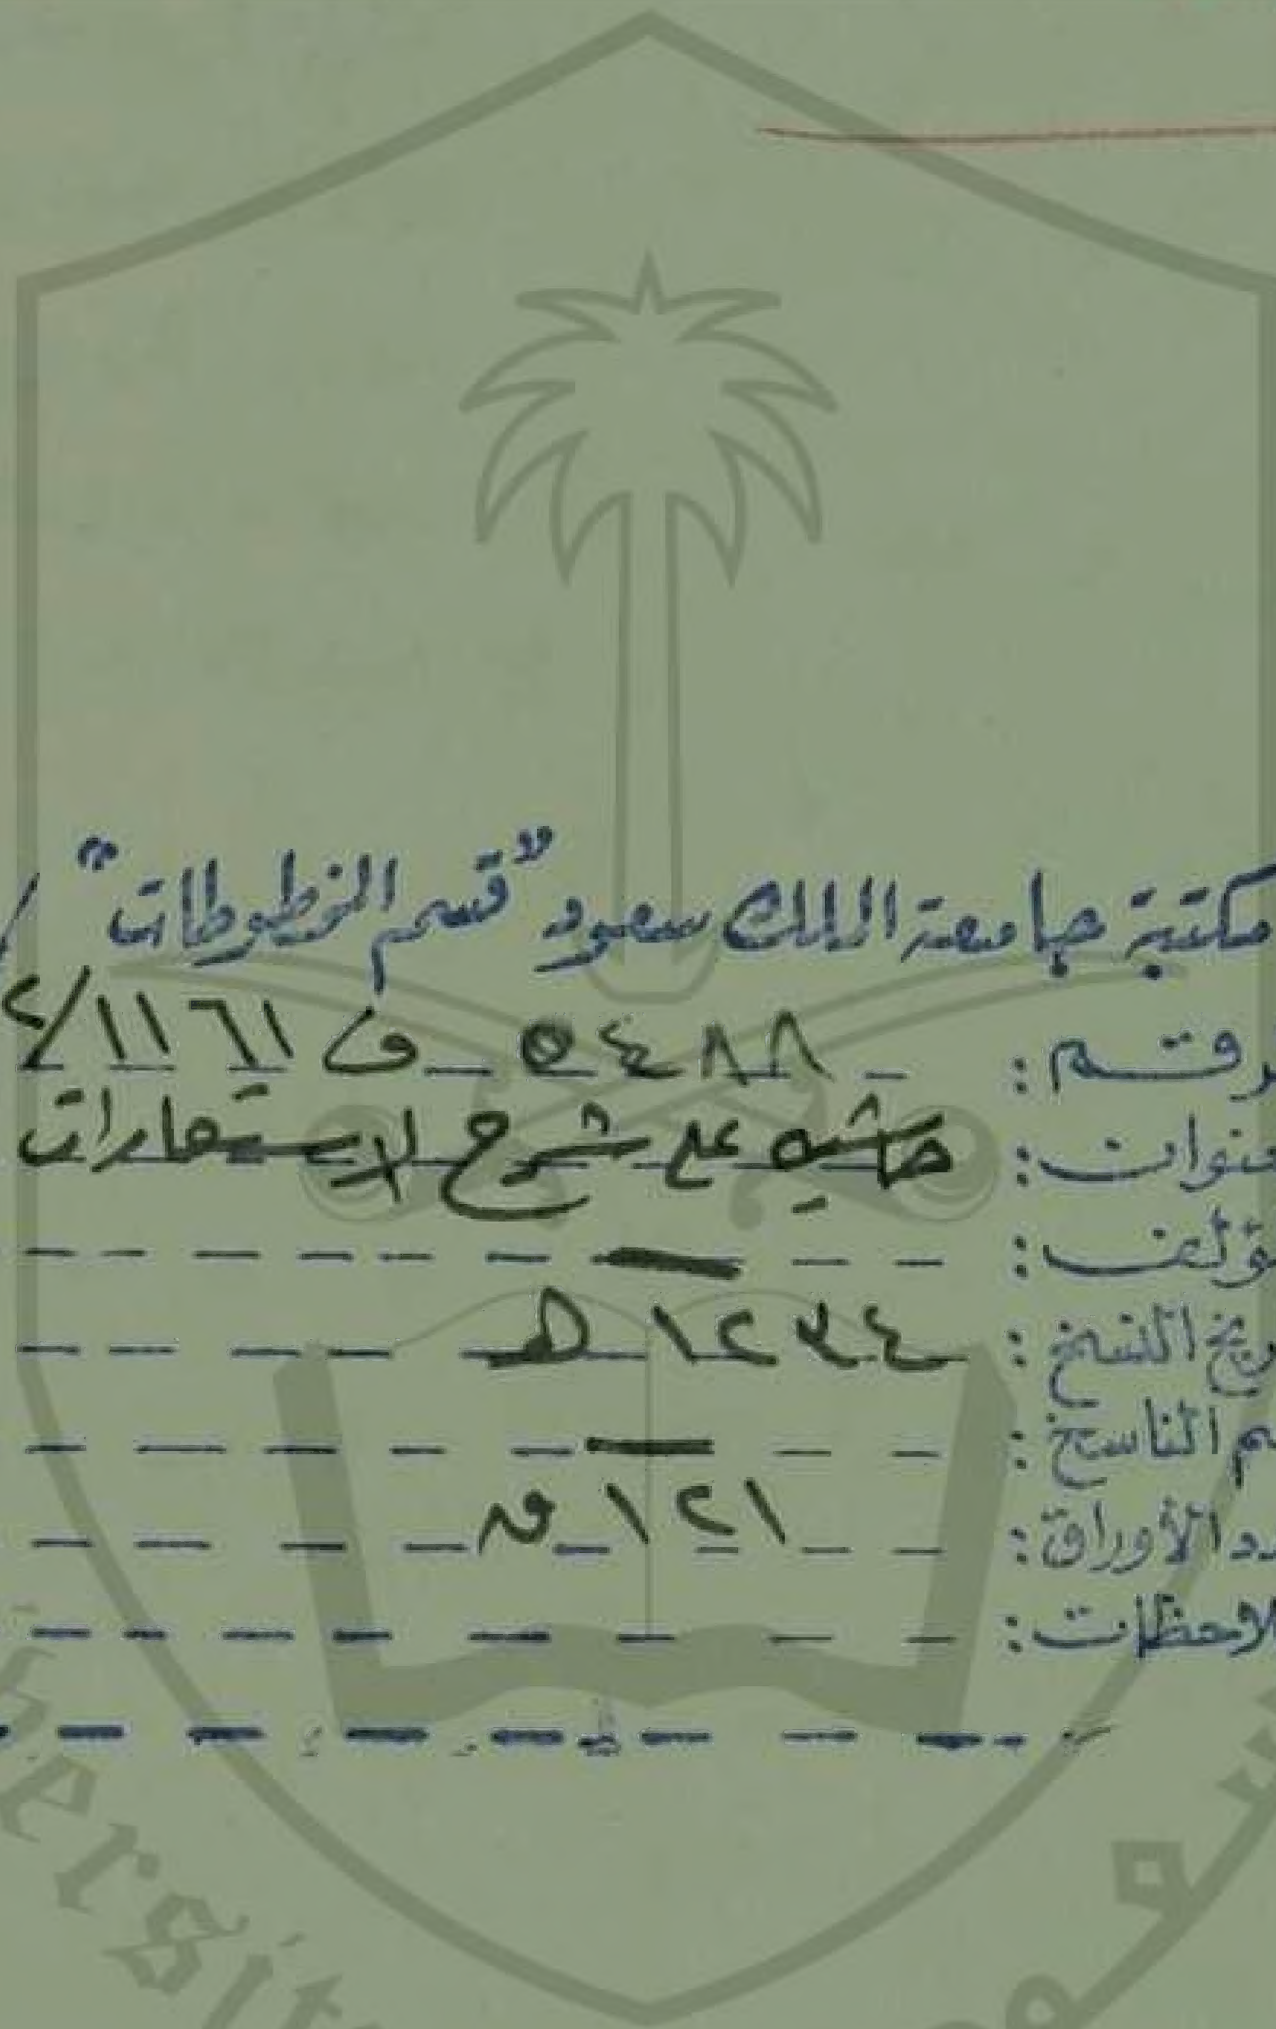 مكتبة جامعة الملك سعود "قسم المخطوطات"
رقم: ٥٤٨٨ ف ١١٦١/٢
عنوان: حاشيه على شرح الاستعارات
مؤلف:
ريخ النسخ: ١٢٣٤ هـ
م الناسخ:
دد الأوراق: ١٢١ ق
لاحظات:
ersit
سعو